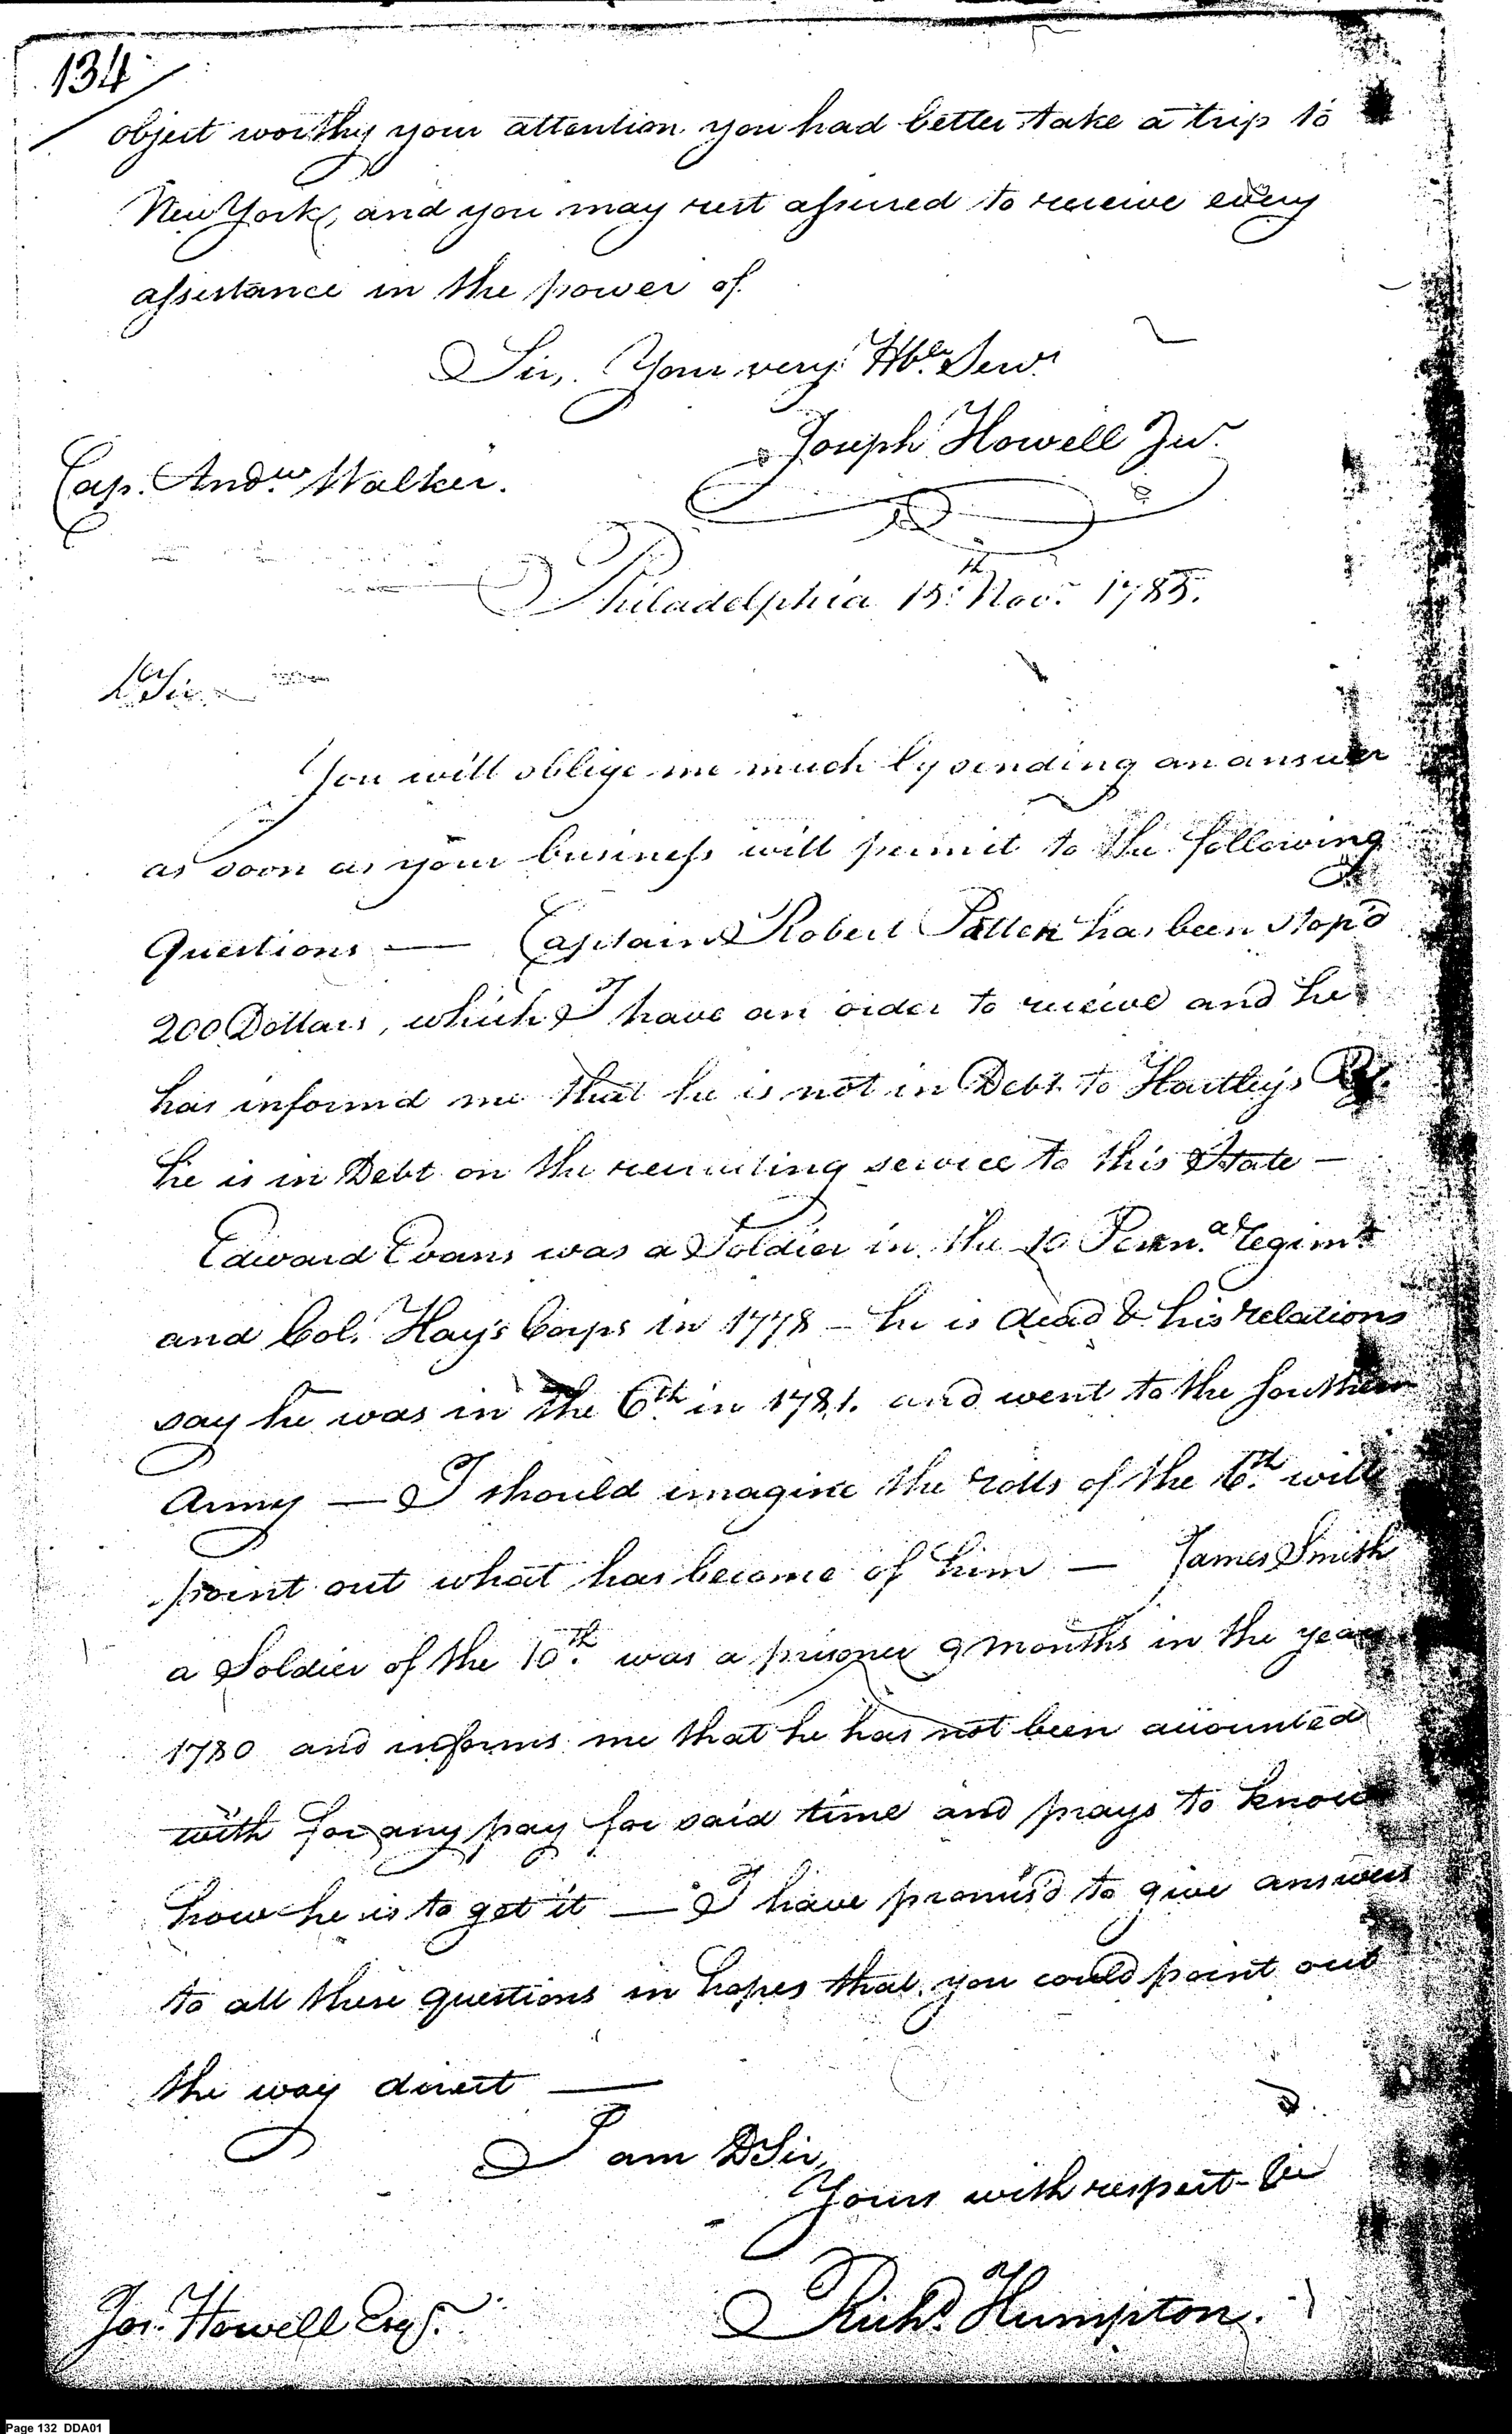 134
object worthy your attention you had better take a trip to
New York, and you may rest assured to receive every
assistance in the power of
Sir, Your very Hble. Servt.
Joseph Howell Jur.
Cap. Andw. Walker.
Philadelphia 15th. Nov. 1785.
Dr Sir
You will oblige me much by sending an answer
as soon as your business will permit to the following
Questions — Captain Robert Patten has been stop'd
200 Dollars, which I have an order to receive and he
has informd me that he is not in Debt to Hartley's
he is in Debt on the recruiting service to this State —
Edward Evans was a Soldier in the 10 Penna. regimt.
and Col. Hay's Corps in 1778 — he is dead & his relations
say he was in the 6th. in 1781. and went to the Southern
Army — I should imagine the rolls of the 6th. will
point out what has become of him — James Smith
a Soldier of the 10th. was a prisoner 9 months in the year
1780 and informs me that he has not been accounted
with for any pay for said time and prays to know
how he is to get it — I have promis'd to give answers
to all these questions in hopes that you could point out
the way direct —
I am DSir,
Yours with respect
Richd. Humpton.
Jos. Howell Esqr.
Page 132 DDA01